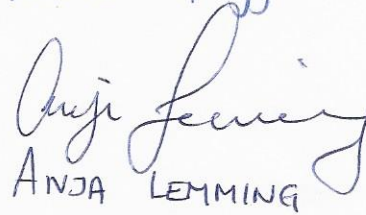 Anja Lemming
ANJA LEMMING